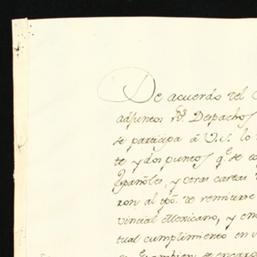 De acuerdo del
adjuntos Despachos
se participa á V.S. lo
te y dos puntos q.e se co
Españoles, y otras cartas
ron al tpo. de remitirse
vincial Mexicano, y en
tual cumplimiento en v